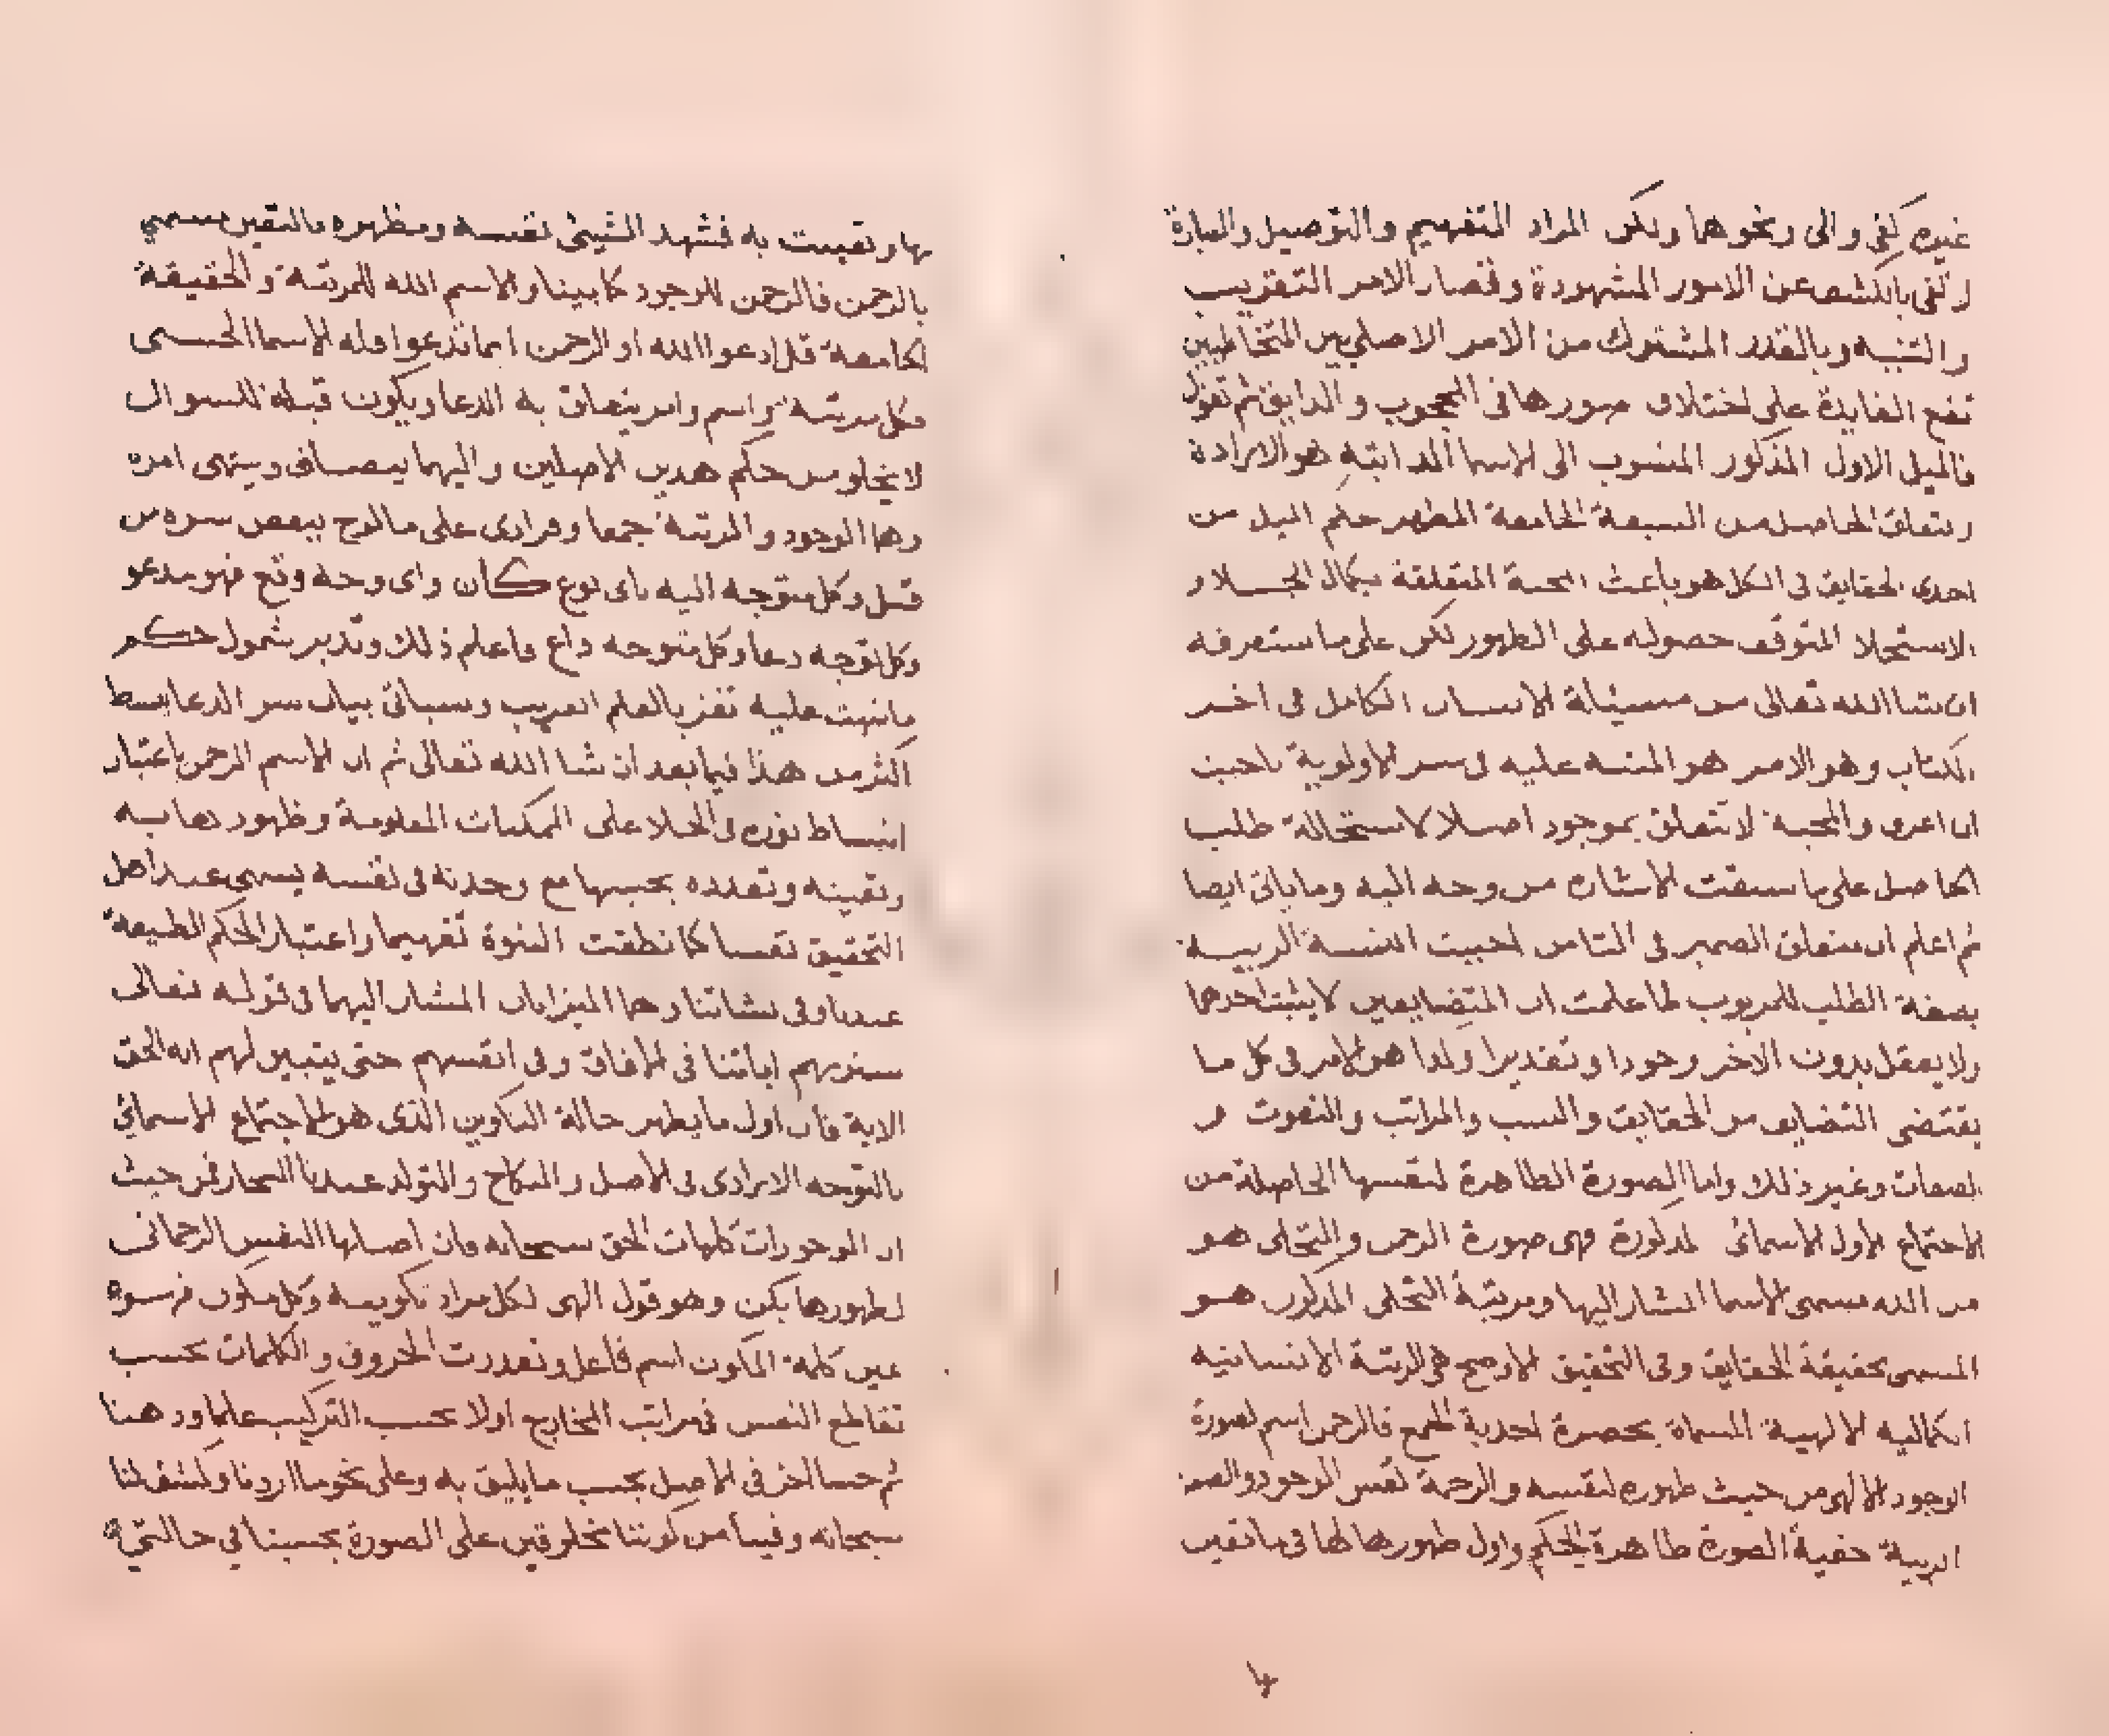 غيره كفى والى ونحوها ولكن المراد التفهيم والتوصيل والعبارة
لا تفى بالكشف عن الامور المشهودة وقصار الامر التقريب
والتشبيه وبالقدر المشترك من الامر الاصلى بين المتخاطبين
تقع الفايدة على اختلاف صورها فى المحجوب والذايق ثم نقول
فالميل الاول المذكور المنسوب الى الاسما الذاتيه هو الارادة
وتعلق الحاصل من السبعة الجامعة المظهر حكم الميل من
احدى الحقايق فى الكل هو باعث المحبة المتعلقة بكمال الجلا و
الاستجلا المتوقف حصوله على الظهور لكن على ما ستعرفه
ان شا الله تعالى من مسئلة الانسان الكامل فى اخر
الكتاب وهو الامر هو المنبه عليه فى سر الاولوية باحببت
ان اعرف والمحبة لا تتعلق بموجود اصلا لاستحالة طلب
الحاصل على ما سبقت الاشارة من وجه اليه وما ياتى ايضا
ثم اعلم ان متعلق الضمير فى التا من احببت النسبة الربيبة
بصفة الطلب للمربوب لما علمت ان المتضايفين لا يثبت احدهما
ولا يعقل بدون الاخر وجودا وتقديرا ولذا هو الامر فى كل ما
يقتضى التضايف من الحقايق والنسب والمراتب والنعوت و
الصفات وغير ذلك واما الصورة الظاهرة لنفسها الحاصلة من
الاجتماع الاول الاسمائى المذكورة فهى صورة الرحمن والتجلى هو
من الله مسمى الاسما المشار اليها ومرتبة التجلى المذكور هو
المسمى بحقيقة الحقايق وفى التحقيق الاوضح هى المرتبة الانسانيه
الكماليه الالهية المسماة بحضرة احدية الجمع فالرحمن اسم لصورة
الوجود الالهى من حيث ظهوره لنفسه والرحمة نفس الوجود والصفة
الربية خفية الصورة ظاهرة الحكم واول ظهورها لها فى ما تعين
بها وتعينت به فشهد الشيئ نفسه ومظهره بالتعين سمى
بالرحمن فالرحمن للوجود كما بينا والاسم الله للمرتبة والحقيقة
الجامعة قل ادعوا الله او الرحمن ايما تدعوا فله الاسما الحسنى
وكل مرتبة واسم وامر يتعلق به الدعا ويكون قبلة للسوال
لا يخلو من حكم هذين الاصلين واليهما يضاف وينتهى امره
وهما الوجود والمرتبة جمعا وفرادى على ما لوح ببعض سره من
قبل وكل متوجه اليه باى نوع كان واى وجه وقع فهو مدعو
وكل توجه دعا وكل متوجه داع فاعلم ذلك وتدبر شمول حكم
ما نبهت عليه تفز بالعلم الغريب وسياتى بيان سر الدعا ابسط
اكثر من هذا فيما بعد ان شا الله تعالى ثم ان الاسم الرحمن باعتبار
انبساط نوره فى الخلا على الممكنات المعلومة وظهورها به
وتعينه وتعدده بحسبها مع وحدته فى نفسه يسمى عند اهل
التحقيق نفسا كما نطقت النبوة تفهيما واعتبار الحكم الطبيعة
عندنا وفى نشاتنا وهما الميزانان المشار اليهما فى قوله تعالى
سنريهم اياتنا فى الافاق وفى انفسهم حتى يتبين لهم انه الحق
الاية فان اول ما يظهر حالة التكوين الذى هو الاجتماع الاسمائى
بالتوجه الارادى فى الاصل والنكاح والتولد عندنا البخار فمن حيث
ان الموجودات كلمات الحق سبحانه وان اصلها النفس الرحمانى
لظهورها بكن وهو قول الهى لكل مراد تكوينه وكل مكون فرسوه
عين كلمة المكون اسم فاعل وتعددت الحروف والكلمات بحسب
تقاطع النفس فى مراتب المخارج اولا بحسب التركيب علما وذهنا
ثم حسا اخر فى الاصل بحسب ما يليق به وعلى نحو ما اردنا وكشف لنا
سبحانه وفينا من كوننا مخلوقين على الصورة بحسبنا فى حالتى